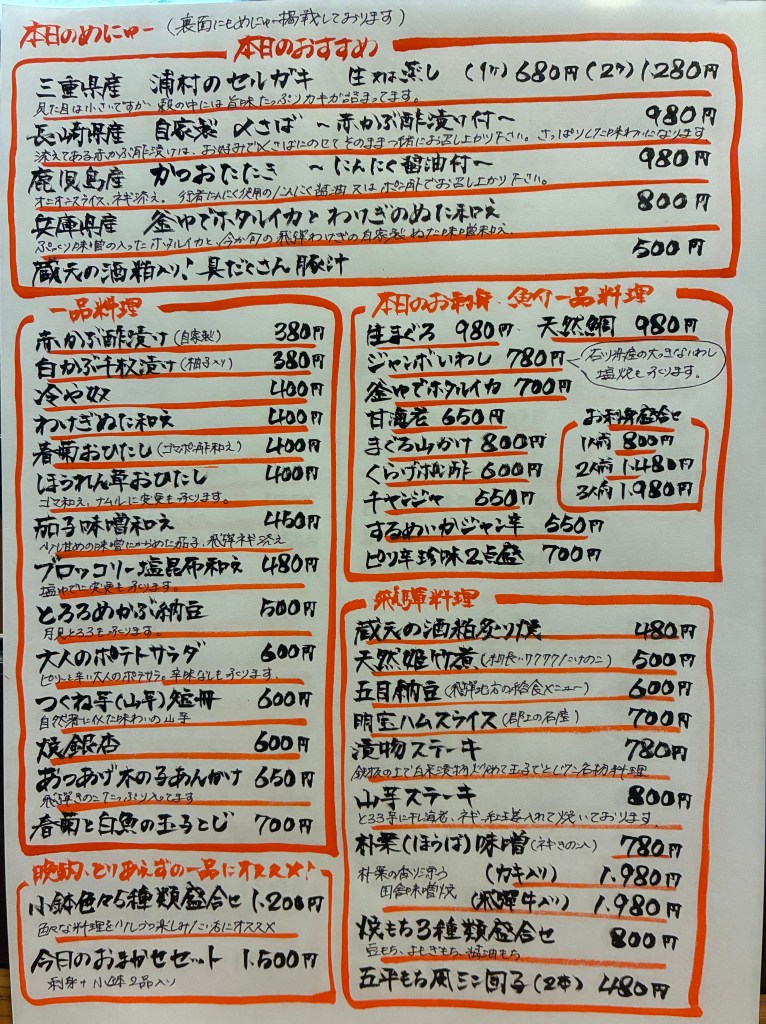 本日のめにゅー (裏面にもめにゅー掲載しております)
本日のおすすめ
三重県産 浦村のセルガキ 生又は蒸し (1ケ) 680円 (2ケ) 1.280円
見た目は小さいですが 殻の中には旨味たっぷりカキが詰まってます。
長崎県産 自家製 〆さば 〜赤かぶ酢漬け付〜 980円
添えてある赤かぶ酢漬けは、お好みで〆さばにのせてそのまま一緒にお召し上がり下さい。さっぱりした味わいになります
鹿児島産 かつおたたき 〜にんにく醤油付〜 980円
オニオンスライス、ネギ添え。 行者にんにく使用のにんにく醤油又はポン酢でお召し上がり下さい。
兵庫県産 釜ゆでホタルイカとわけぎのぬた和え 800円
ぷっくり味噌の入ったホタルイカと、今が旬の飛騨わけぎの自家製ぬた味噌和え。
蔵元の酒粕入り! 具だくさん豚汁 500円
一品料理
赤かぶ酢漬け (自家製) 380円
白かぶ千枚漬け (柚子入り) 380円
冷や奴 400円
わけぎぬた和え 400円
春菊おひたし (ゴマポン酢和え) 400円
ほうれん草おひたし 400円
ゴマ和え、ナムルに変更も承ります。
茄子味噌和え 450円
少し甘めの味噌にからめた茄子、飛騨ネギ添え
ブロッコリー塩昆布和え 480円
塩ゆでに変更も承ります。
とろろめかぶ納豆 500円
月見とろろも承ります。
大人のポテトサラダ 600円
ピリッと辛い大人のポテサラ。辛味なしも承ります。
つくね芋(山芋)短冊 600円
自然薯に似た味わいの山芋
焼銀杏 600円
あつあげ木の子あんかけ 650円
飛騨きのこたっぷり入ってます
春菊と白魚の玉子とじ 700円
晩酌、とりあえずの一品にオススメ!
小鉢色々5種類盛合せ 1.200円
色々な料理を少しづつ楽しみたい方にオススメ
今日のおまかせセット 1.500円
刺身+小鉢2品入り
本日のお刺身・魚介一品料理
生まぐろ 980円 天然鯛 980円
ジャンボいわし 780円
石川県産の大きないわし
塩焼も承ります。
釜ゆでホタルイカ 700円
甘海老 650円
まぐろ山かけ 800円
くらげポン酢 600円
チャンジャ 550円
するめいかジャン辛 550円
ピリ辛珍味2点盛 700円
お刺身盛合せ
1人前 800円
2人前 1.480円
3人前 1.980円
飛騨料理
蔵元の酒粕炙り焼 480円
天然姫竹煮 (細長いワクワクたけのこ) 500円
五目納豆 (飛騨地方の給食メニュー) 600円
明宝ハムスライス (郡上の名産) 700円
漬物ステーキ 780円
鉄板の上で白菜漬物を炒めて玉子でとじた名物料理
山芋ステーキ 800円
とろろ芋に干し海老、ネギ、紅生姜入れて焼いております。
朴葉(ほうば)味噌 (ネギきのこ入) 780円
朴葉の香り漂う
田舎味噌焼
(カキ入り) 1.980円
(飛騨牛入り) 1.980円
焼もち3種類盛合せ 800円
豆もち、よもぎもち、醤油もち
五平もち風ミニ団子(2本) 480円